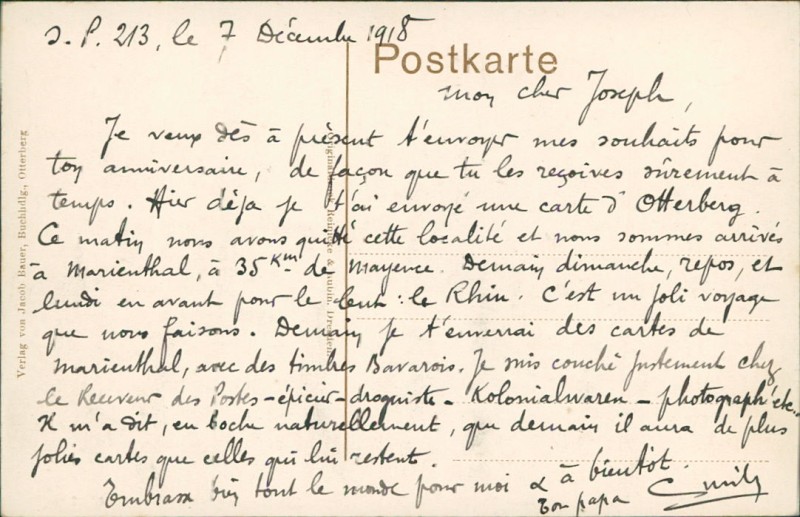 S.P. 213, le 7 Décembre 1918
Postkarte
Mon cher Joseph,
Je veux dès à présent t'envoyer mes souhaits pour
ton anniversaire, de façon que tu les reçoives sûrement à
temps. Hier déja je t'ai envoyé une carte d'Otterberg.
Ce matin nous avons quitté cette localité et nous sommes arrivés
à Marienthal, à 35 Km de Mayence. Demain dimanche, repos, et
lundi en avant pour le but : le Rhin. C'est un joli voyage
que nous faisons. Demain je t'enverrai des cartes de
Marienthal, avec des timbres Bavarois. Je suis couché justement chez
le Receveur des Postes - épicier - droguiste - Kolonialwaren - photograph' etc...
Il m'a dit, en boche naturellement, que demain il aura de plus
jolies cartes que celles qui lui restent.
Embrasse bien tout le monde pour moi & à bientôt.
Ton papa
Verlag von Jacob Bauer, Buchhdlg., Otterberg